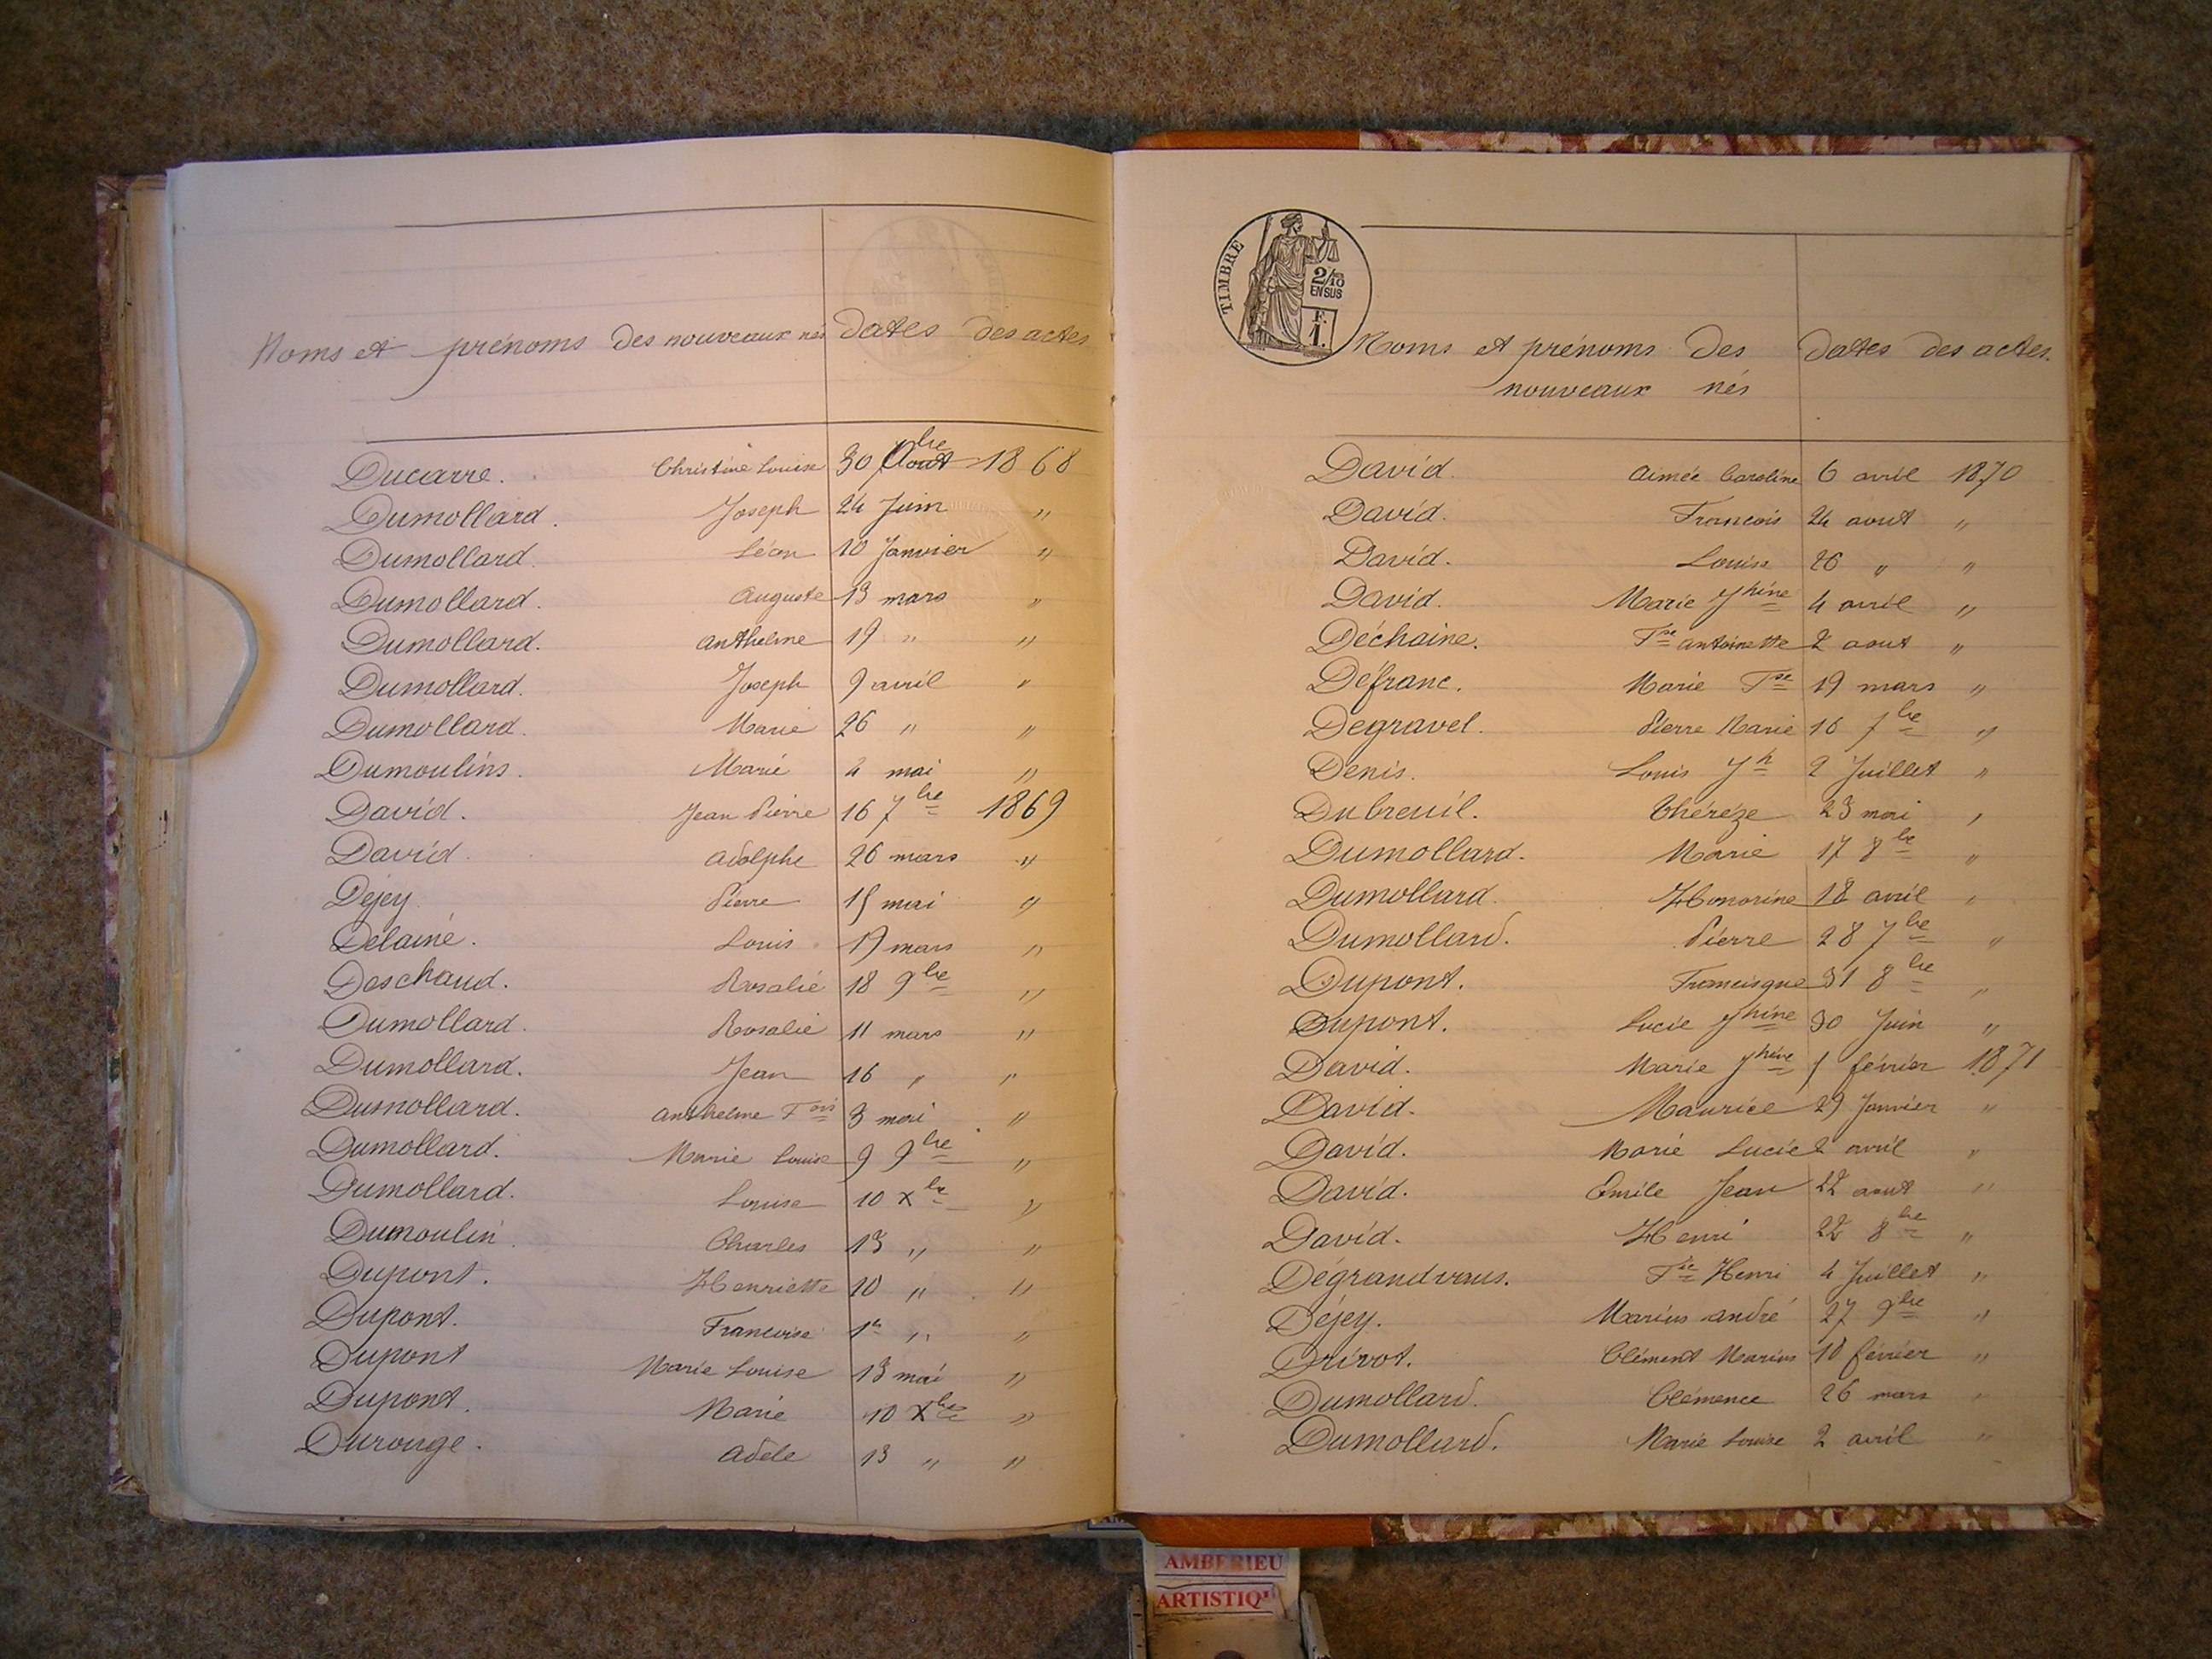 Noms et prénoms des nouveaux nés dates des actes
Ducarre. Christine Louise 30 1868
Dumollard. Joseph 24 Juin "
Dumollard. Léon 10 Janvier "
Dumollard. Auguste 13 mars "
Dumollard. anthelme 19 " "
Dumollard. Joseph 9 avril "
Dumollard. Marie 26 " "
Dumoulins. Marie 4 mai "
David. Jean Pierre 16 7bre 1869
David. Adolphe 26 mars "
Déjey. Pierre 15 mai "
Delaine. Louis 19 mars "
Deschaud. Rosalie 18 9bre "
Dumollard. Rosalie 11 mars "
Dumollard. Jean 16 " "
Dumollard. anthelme Fois 3 mai "
Dumollard. Marie Louise 9 9bre "
Dumollard. Louise 10 Xbre "
Dumoulin. Charles 13 " "
Dupont. Henriette 10 " "
Dupont. Francoise 1er " "
Dupont Marie Louise 13 mai "
Dupont. Marie 10 Xbre "
Durouge. adèle 13 " "
TIMBRE
2/10
EN SUS
F.
1.
Noms et prénoms des dates des actes.
nouveaux nés
David. Aimée Caroline 6 avril 1870
David. Francois 24 aout "
David. Louise 26 " "
David. Marie Jphine 4 avril "
Déchaine. Fse antoinette 2 aout "
Défranc. Marie Fse 19 mars "
Degravel. Pierre Marie 16 7bre "
Denis. Louis Jh 2 Juillet "
Dubreuil. Thérèze 23 mai "
Dumollard. Marie 17 8bre "
Dumollard. Honorine 18 avril "
Dumollard. Pierre 28 7bre "
Dupont. Francisque 31 8bre "
Dupont. Lucie Jphine 30 Juin "
David. Marie Jphine 1 février 1871
David. Maurice 29 Janvier "
David. Marie Lucie 2 avril "
David. Emile Jean 22 aout "
David. Henri 22 8bre "
Dégrandvaus. Henri 4 Juillet "
Déjey. Marius andré 27 9bre "
Drivot. Clément Marius 10 février "
Dumollard. Clémence 26 mars "
Dumollard. Marie Louise 2 avril "
AMBERIEU
ARTISTIQ